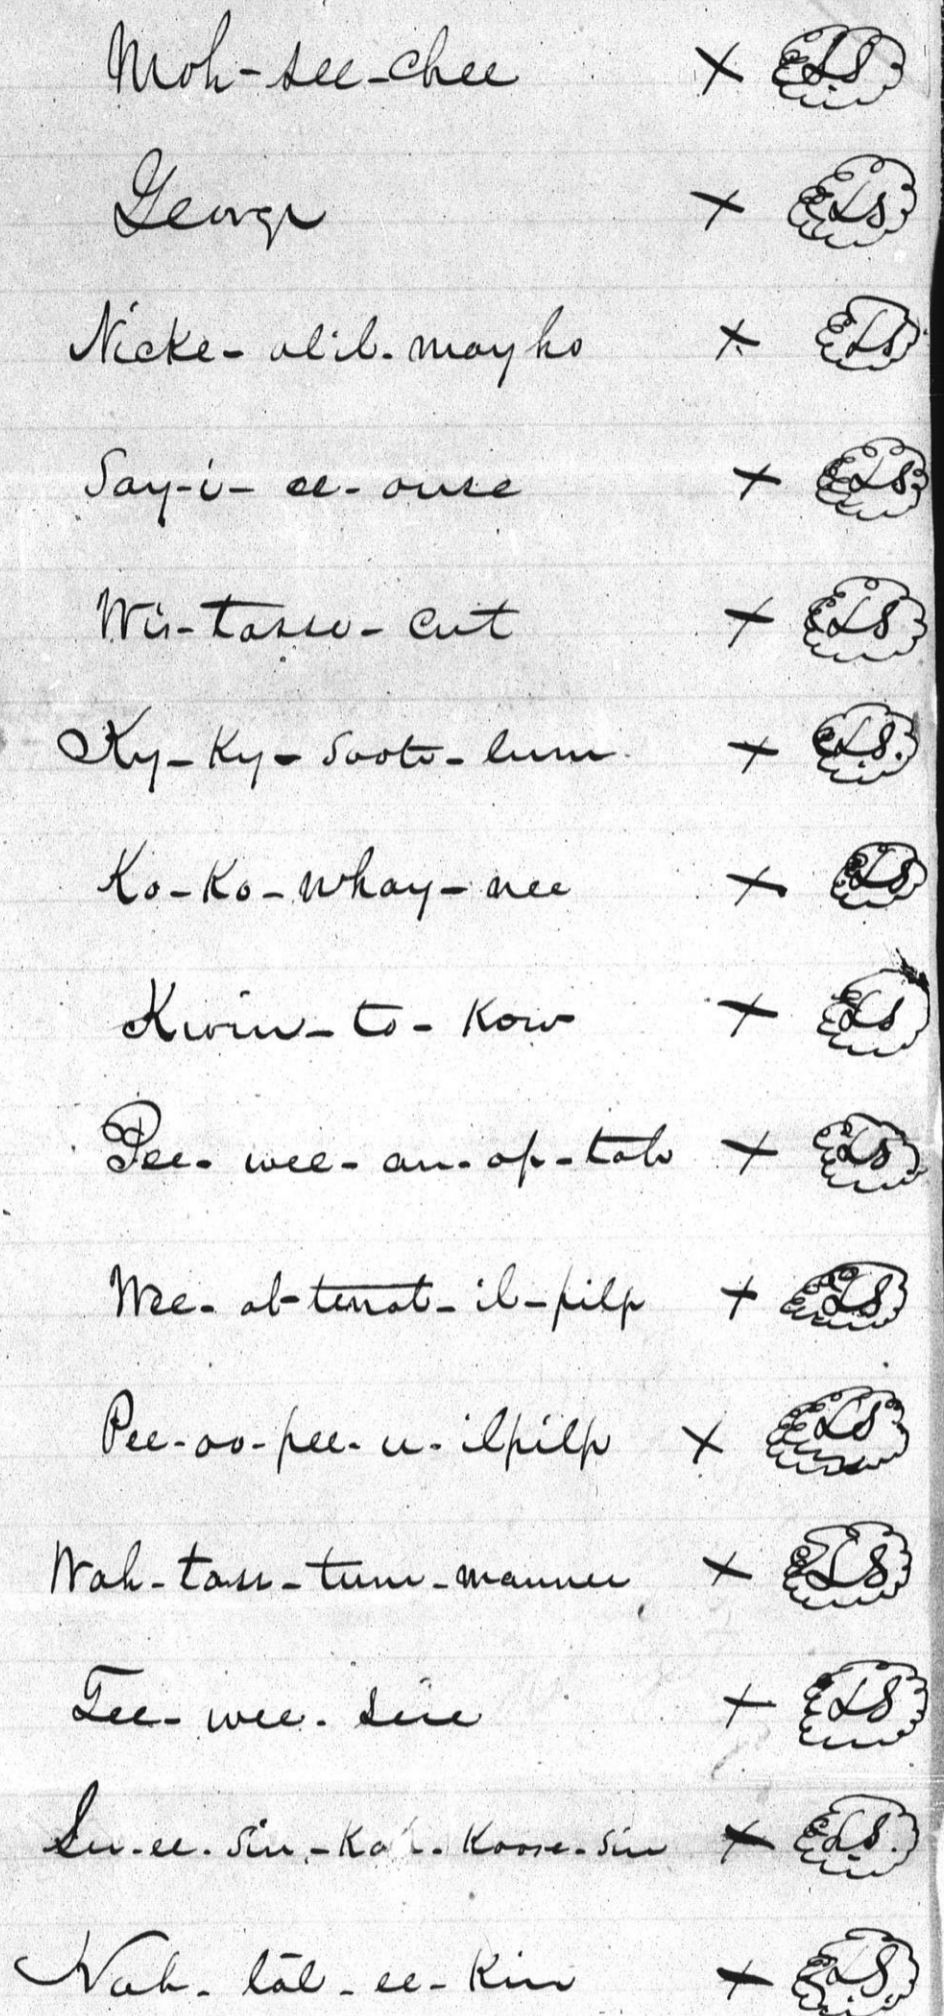 Moh-see-chee × LS
George × LS
Nicke-alil-mayho × LS
Say-i-ee-ouse × LS
Wis-tasse-cut × LS
Ky-Ky-soote-lum × LS.
Ko-Ko-whay-nee × LS
Kwin-to-Kow × LS
Pee-wee-au-ap-tah × LS
Wee-at-tenat-il-pilp × LS
Pee-oo-pee-u-ilpilp × LS
Wah-tass-tum-mannee × LS
Tee-wee-sice × LS
Lu-ee-sin-Koose-sin × LS.
Nah-tal-ee-Kin × LS.